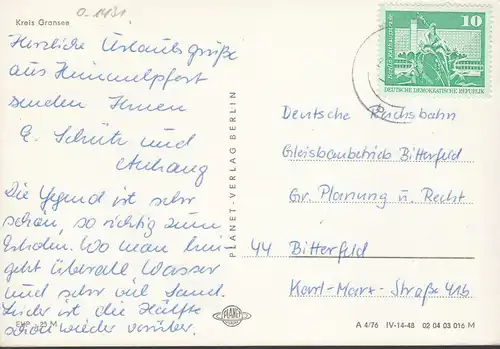 Kreis Gransee
0-1431
Herzliche Urlaubsgrüße
aus Himmelpfort
senden Ihnen
E. Schütz und
Anhang
Die Gegend ist sehr
schön, so richtig zum
Erholen. Wo man hin
geht überall Wasser
und sehr viel Sand.
Leider ist die Hälfte
schon wieder vorüber.
EVP -,25 M
PLANET-VERLAG BERLIN
PLANET
10
DEUTSCHE DEMOKRATISCHE REPUBLIK
Deutsche Reichsbahn
Gleisbaubetrieb Bitterfeld
Gr. Planung u. Recht
44 Bitterfeld
Karl-Marx-Straße 41b
A 4/76 IV-14-48 02 04 03 016 M